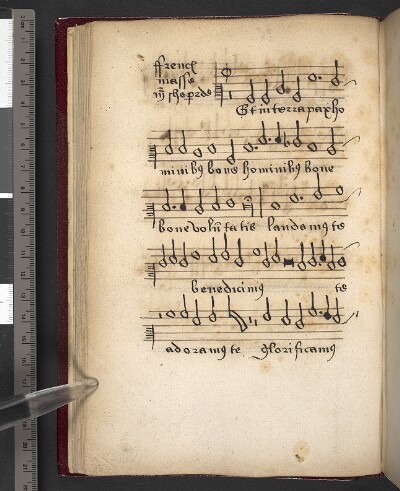 ffrench
masse
mr sheperde
Et in terra pax ho
minibus bone hominibus bone
bone volutatis laudamus te
benedicimus te
adoramus te glorificamus